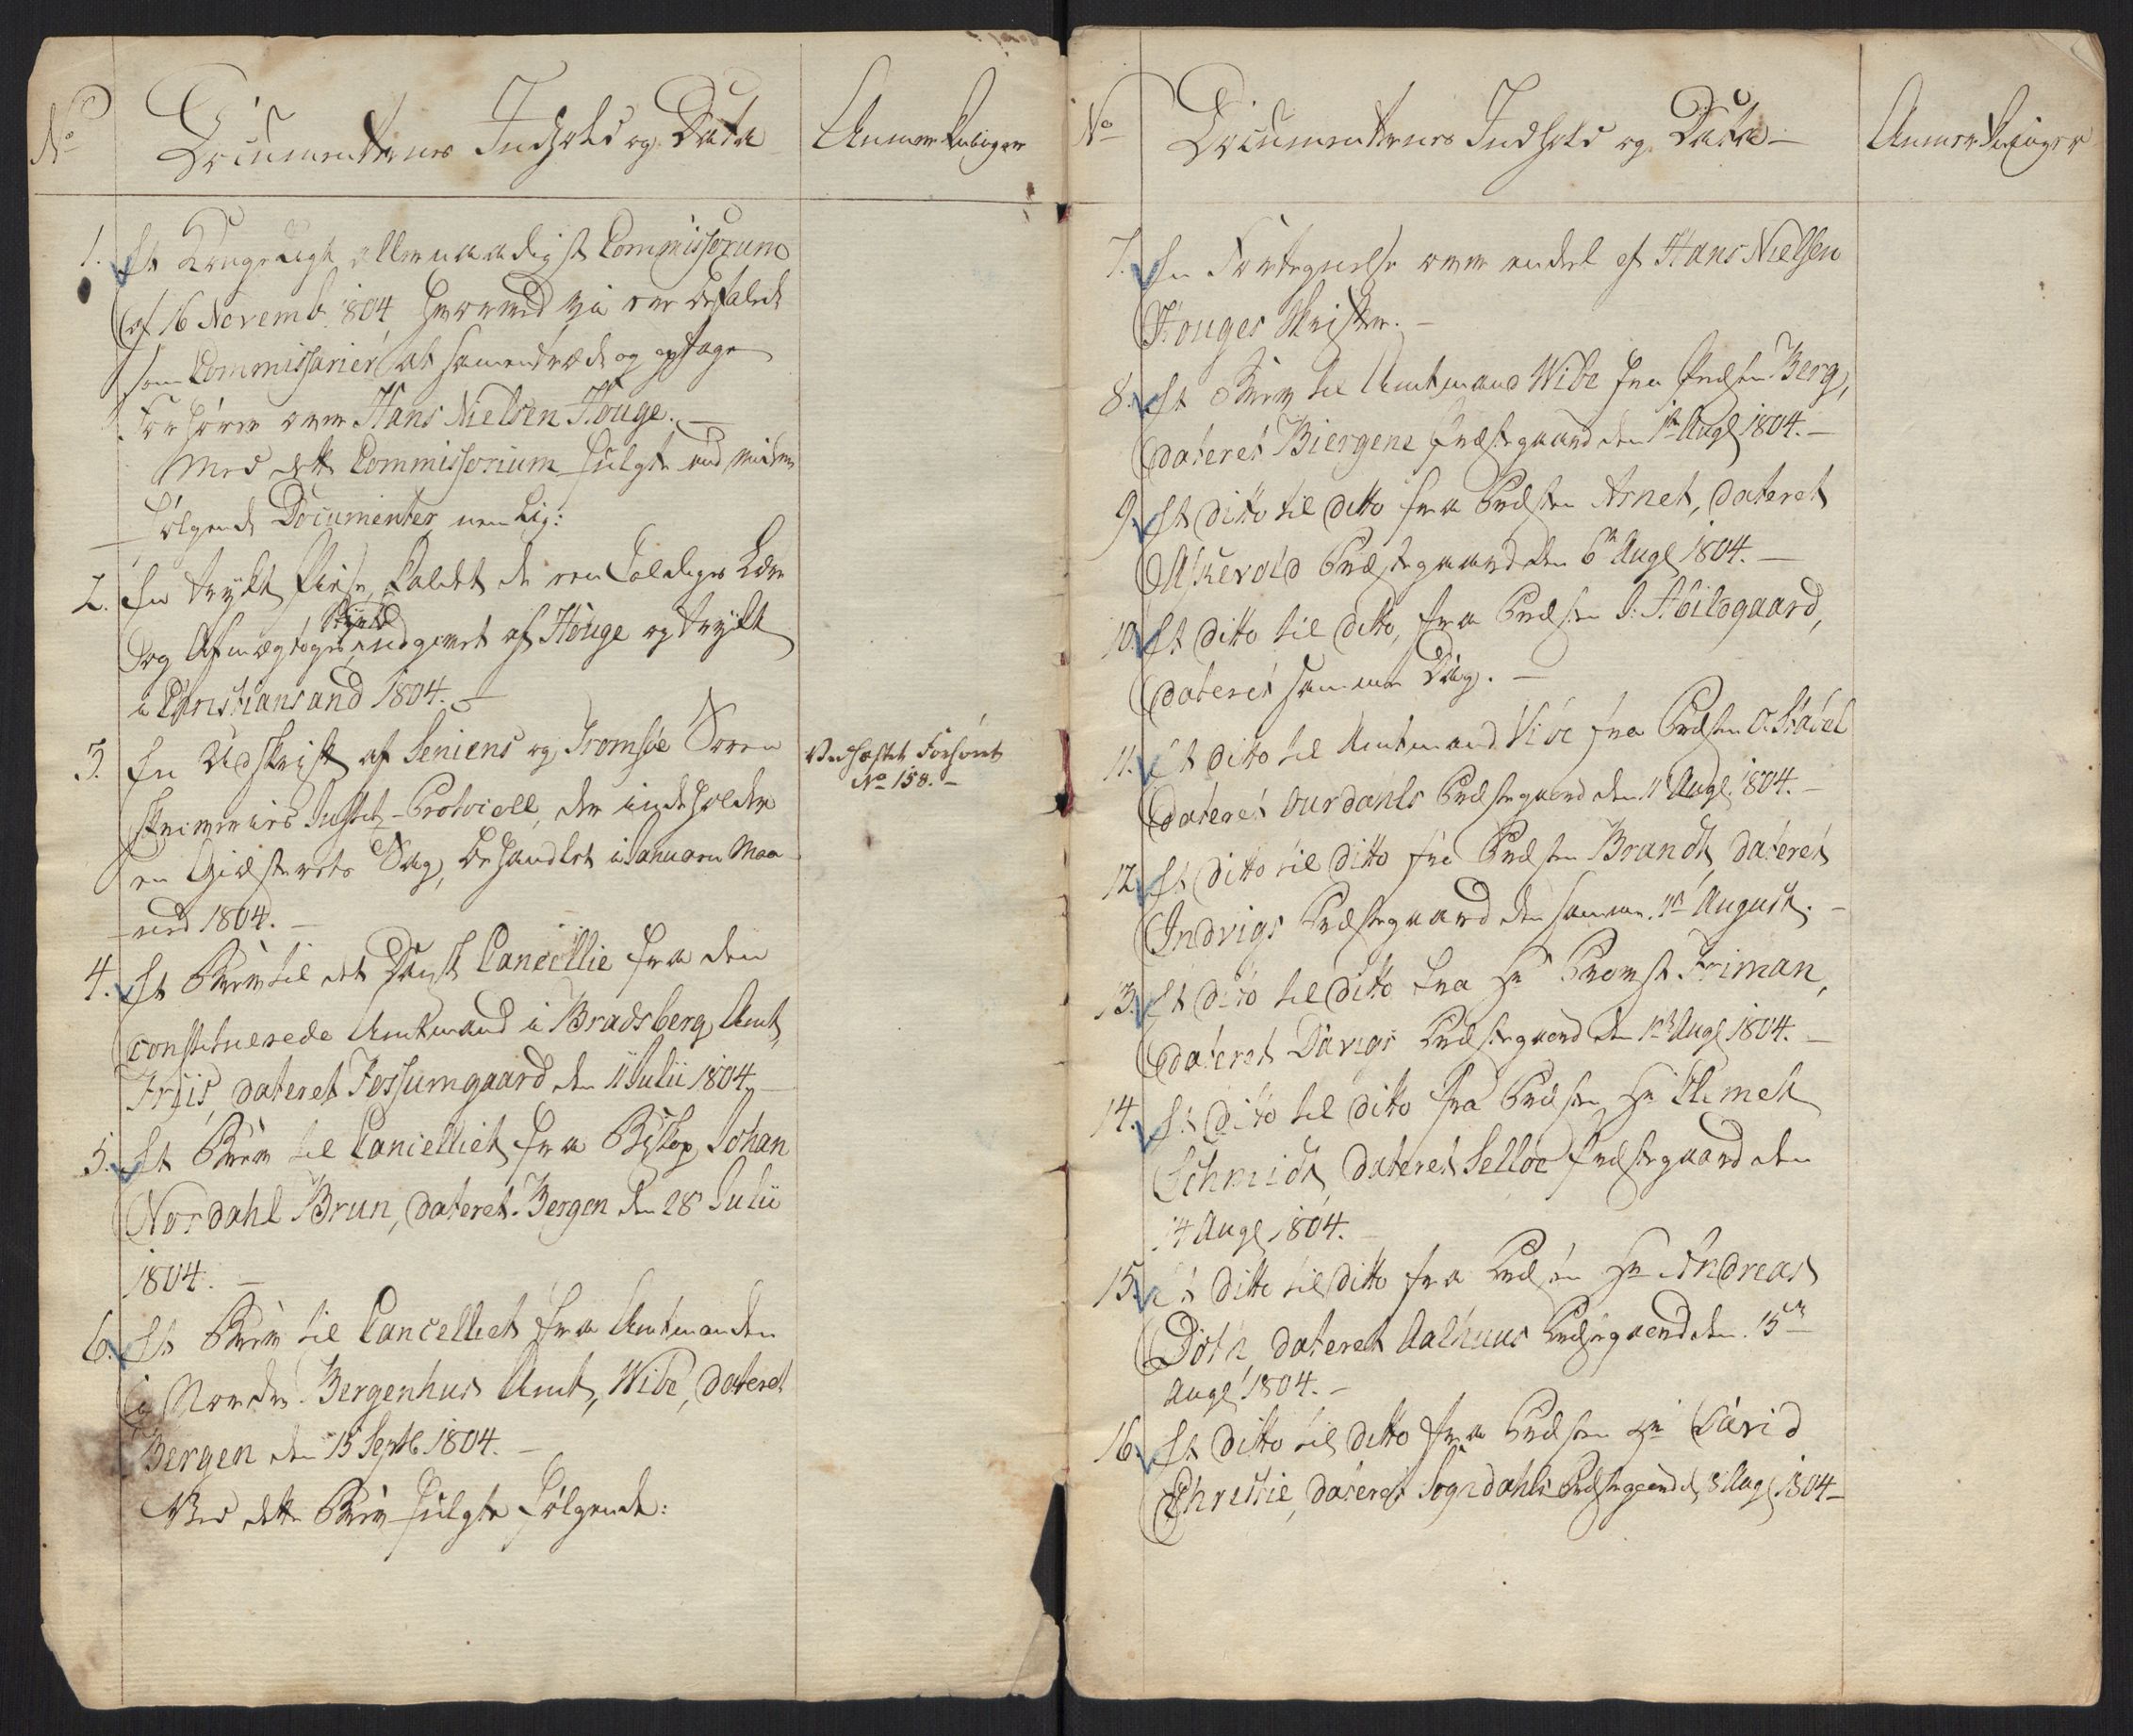 No
Documenternes Indhold og Data
Anmærkninger
1. Et Kongeligt allernaadigst Commissorium
af 16 Novemb. 1804, hvorved vi ere befalede
som Commissarier at sammentræde og optage
Forhører over Hans Nielsen Houge. —
Med dette Commissorium fulgte
følgende Documenter nemlig:
2. En trykt Piese, kaldet de
og Afmægtiges Styrke udgivet af Houge og trykt
i Christiansand 1804. —
3. En Udskrift af Seniens og Tromsøe Soren
skriveries Justits-Protocoll, der indeholder
en Giæsterets Sag, behandlet i Januarii Maa-
ned 1804. —
Vedhæftet Forhøret
No 158. —
4. Et Brev til det Danske Cancellie fra den
constituerede Amtmand i Bradsberg Amt,
Friis, dateret Fossumgaard den 11 Julii 1804. —
5. Et Brev til Cancelliet fra Biskop Johan
Nordahl Brun, dateret Bergen den 28 Julii
1804. —
6. Et Brev til Cancelliet fra Amtmanden
i Nordre Bergenhus Amt, Wibe, dateret
Bergen den 15 Septb. 1804. —
Med dette Brev fulgte følgende:
No
Documenternes Indhold og Data —
Anmærkninger
7. En Fortegnelse over endel af Hans Nielsen
Houges Skrifter. —
8. Et Brev til Amtmand Wibe fra Præsten Berg,
dateret Biergene Præstegaard den 1te Augs 1804. —
9. Et ditto til ditto fra Præsten Arnet, dateret
Askevold Præstegaard den 6te Augs 1804. —
10. Et ditto til ditto, fra Præsten J. Abildgaard,
dateret samme Dag. —
11. Et ditto til Amtmand Vibe fra Præsten O. Stabel
dateret Ourdahls Præstegaard den 11 Augs. 1804. —
12. Et ditto til ditto fra Præsten Brandt, dateret
Indvigs Præstegaard den samme 11te August. —
13. Et ditto til ditto fra Hr Provst Friman,
dateret Davigs Præstegaard den 12te Augs 1804. —
14. Et ditto til ditto fra Præsten Hr Klemet
Schmidt, dateret Selløe Præstegaard den
14 Augs 1804. —
15. Et ditto til ditto fra Præsten Hr Andreas
Døth dateret Aalhuus Præstegaard den 15de
Augs 1804. —
16. Et ditto til ditto fra Præsten Hr David
Christie, dateret Sogndahls Præstegaard d. 8 Augs 1804 —